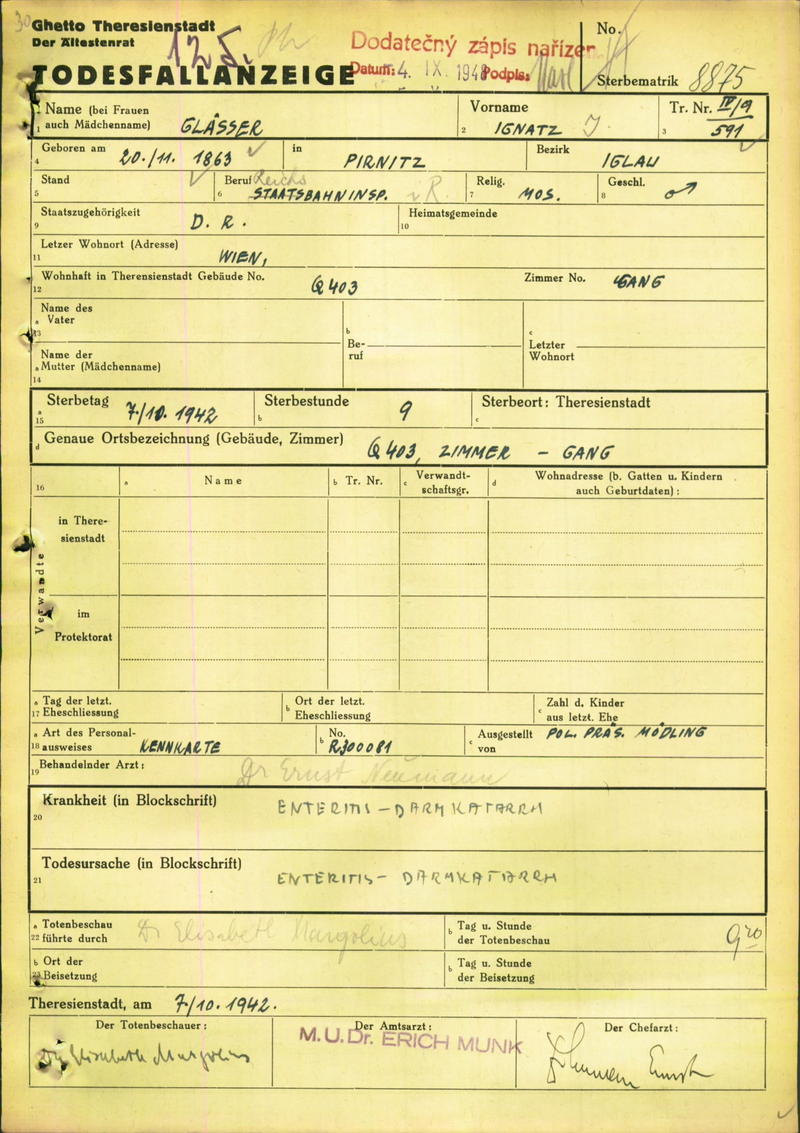 Ghetto Theresienstadt
Der Ältestenrat
125.
Dodatečný zápis nařízen
Datum: 4. IX. 194 Podpis:
No.
TODESFALLANZEIGE
Sterbematrik 8875
Name (bei Frauen
1 auch Mädchenname) GLÄSSER
Vorname
2 IGNATZ J
Tr. Nr. IV/9
3 591
Geboren am
4 20./11. 1863
in PIRNITZ
Bezirk IGLAU
Stand
5
Beruf Reichs
6 STAATSBAHNINSP. i R.
Relig.
7 MOS.
Geschl.
8 ♂
Staatszugehörigkeit
9 D. R.
Heimatsgemeinde
10
Letzer Wohnort (Adresse)
11 WIEN,
Wohnhaft in Therensienstadt Gebäude No. Q 403
12
Zimmer No. GANG
Name des
a Vater
13
Name der
a Mutter (Mädchenname)
14
b
Be-
ruf
c
Letzter
Wohnort
Sterbetag
a 15 7/10. 1942
Sterbestunde
b 9
Sterbeort: Theresienstadt
c
d Genaue Ortsbezeichnung (Gebäude, Zimmer) Q 403, ZIMMER - GANG
16
a Name
b Tr. Nr.
c Verwandt-
schaftsgr.
d Wohnadresse (b. Gatten u. Kindern
auch Geburtdaten):
Verwandte
in There-
sienstadt
im
Protektorat
a Tag der letzt.
17 Eheschliessung
b Ort der letzt.
Eheschliessung
c Zahl d. Kinder
aus letzt. Ehe
a Art des Personal-
18 ausweises KENNKARTE
b No. RJ00081
c Ausgestellt
von POL. PRÄS. MÖDLING
Behandelnder Arzt:
19 Dr Ernst Neumann
Krankheit (in Blockschrift)
20 ENTERITIS - DARMKATARRH
Todesursache (in Blockschrift)
21 ENTERITIS - DARMKATARRH
a Totenbeschau
22 führte durch Dr Elisabeth Margolius
b Tag u. Stunde
der Totenbeschau 9
b Ort der
Beisetzung
b Tag u. Stunde
der Beisetzung
Theresienstadt, am 7/10. 1942.
Der Totenbeschauer:
Dr Elisabeth Margolius
Der Amtsarzt:
M.U.Dr. ERICH MUNK
Der Chefarzt:
Neumann Ernst